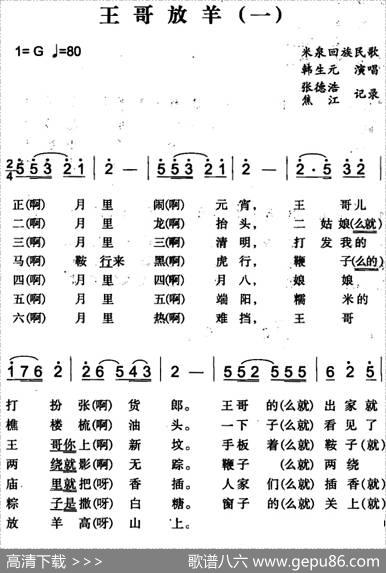 王哥放羊(一)
1=G ♩=80
米泉回族民歌
韩生元 演唱
张德浩
焦江 记录
2/4 5 5 5 3 2 1 | 2 — | 5 5 3 2 1 | 2 — | 2 · 5 3 2 |
正(啊) 月里 闹(啊) 元宵, 王 哥儿
二(啊) 月里 龙(啊) 抬头, 二 姑娘(么就)
三(啊) 月里 三(啊) 清明, 打 发我的
马(啊) 鞍行来 黑(啊) 虎行, 鞭 子(么的)
四(啊) 月里 四(啊) 月八, 娘 娘
五(啊) 月里 五(啊) 端阳, 糯 米的
六(啊) 月里 热(啊) 难挡, 王 哥
1 7 6 2 | 2 6 5 4 3 | 2 — | 5 5 2 5 5 5 | 6 2 5 |
打 扮张(啊) 货 郎。 王哥 的(么就) 出家就
樵 楼梳(啊) 油 头。 一下 子(么就) 看见了
王 哥你上(啊) 新 坟。 手板 着(么就) 鞍子(就)
两 绕就影(啊) 无 踪。 鞭子 (么就) 两绕
庙 里就把(呀) 香 插。 人家 们(么就) 插香(就)
粽 子是撒(呀) 白 糖。 窗子 的(么就) 关上(就)
放 羊高(呀) 山 上。
高清下载 >>>
歌谱八六 www.gepu86.com